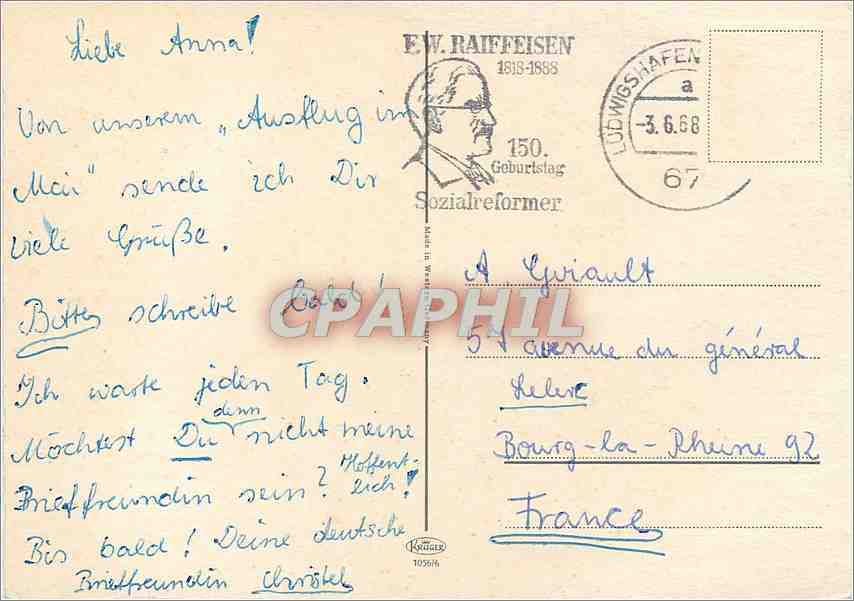 Liebe Anna!
Von unserem „Ausflug im
Mai" sende ich Dir
viele Grüße.
Bitte schreibe bald!
Ich warte jeden Tag.
Möchtest Du denn nicht meine
Brieffreundin sein? Hoffent-
lich!
Bis bald! Deine deutsche
Brieffreundin Christel
F.W. RAIFFEISEN
1818-1888
150.
Geburtstag
Sozialreformer
LUDWIGSHAFEN
a
-3.6.68
67
Made in Western Germany
CPAPHIL
A. Gviault
57 avenue du général
Lelerc
Bourg-la-Rheine 92
France
KRÜGER
1056/6